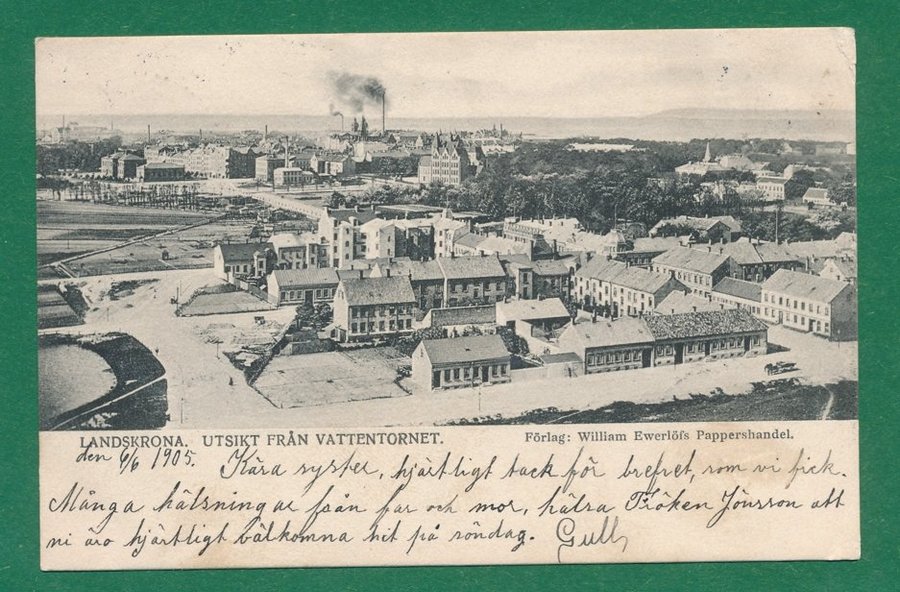 LANDSKRONA. UTSIKT FRÅN VATTENTORNET.
Förlag: William Ewerlöfs Pappershandel.
den 6/6 1905. Kära syster, hjärtligt tack för brefvet, som vi fick.
Många hälsningar från far och mor, hälsa Fröken Jönsson att
ni äro hjärtligt välkomna hit på söndag. Gull,